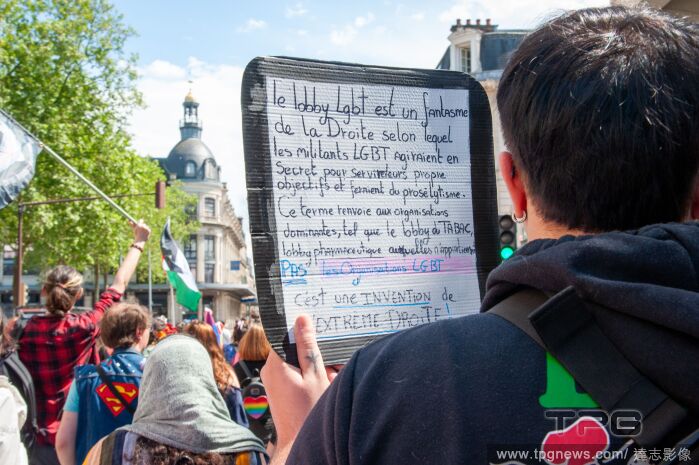 le lobby Lgbt est un fantasme
de la Droite selon lequel
les militants LGBT agiraient en
Secret pour servir leurs propre
objectifs et feraient du prosélytisme.
Ce terme renvoie aux organisations
dominantes, tel que le lobby du TABAC,
lobby pharmaceutique auxquelles n'appartiennent
PAS les Organisations LGBT
c'est une INVENTION de
l'EXTREME DROITE!
TPG
www.tpgnews.com/ 達志影像